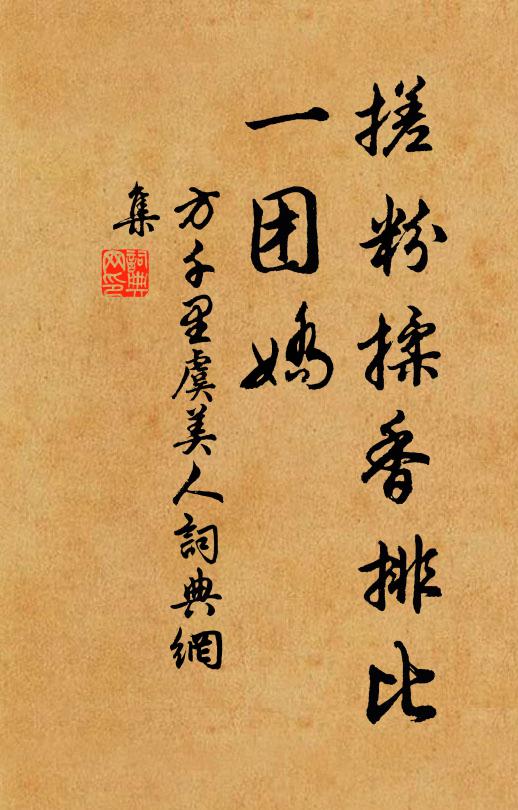 搓粉揉香排比
一团嬌
方千里虞美人詞典網
集
詞典
网印